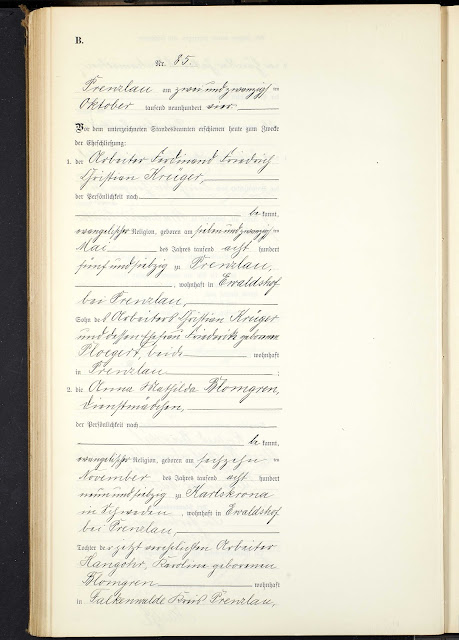 B.
Nr. 85.
Prenzlau am zwei und zwanzigsten
Oktober tausend neunhundert vier
Vor dem unterzeichneten Standesbeamten erschienen heute zum Zwecke
der Eheschließung:
1. der Arbeiter Ferdinand Friedrich
Christian Krüger,
der Persönlichkeit nach
be kannt,
evangelischer Religion, geboren am sieben und zwanzigsten
Mai des Jahres tausend acht hundert
fünf und siebzig zu Prenzlau,
, wohnhaft in Ewaldshof
bei Prenzlau,
Sohn des Arbeiters Christian Krüger
und dessen Ehefrau Friederike geborenen
Ploegert, beide wohnhaft
in Prenzlau ;
2. die Anna Mathilda Blomgren,
Dienstmädchen,
der Persönlichkeit nach
be kannt,
evangelischer Religion, geboren am sechzehnten
November des Jahres tausend acht hundert
neun und siebzig zu Karlskrona
in Schweden, wohnhaft in Ewaldshof
bei Prenzlau,
Tochter der jetzt verehelichten Arbeiter
Hangohr, Karoline geborenen
Blomgren wohnhaft
in Falkenwalde Kreis Prenzlau,